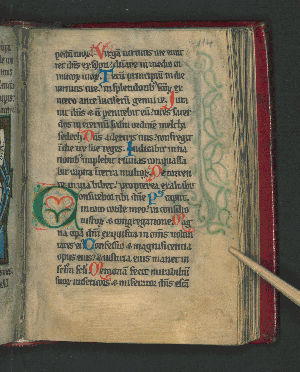 pedum tuor. Virgam virtutis tue emit
tet dñs ex syon: dñare in medio ini
micor tuor. Tecum principium in die
virtutis tue in splendoribz scõr ex
utero ante luciferũ genui te. Jura
vit dñs & ñ penitebit eũ: tu es sacer
dos in eternũ sedm ordinẽ melchi
sedech. Dñs a dextris tuis confregit
i die ire sue reges. Judicabit in na
tionibz implebit ruinas conquassa
bit capita i terra multor. De torren
te in uia bibet: propterea exaltabit
Confitebor tibi dñe
in toto corde meo: in consilio
iustor & congregatione. Mag
na opa dñi: exquisita in oms volun
tates eius. Confessio & magnificentia
opus eius: & iusticia eius manet in
sclm scli. Memoriam fecit mirabiliũ
suor misericors & miserator dñs: escã